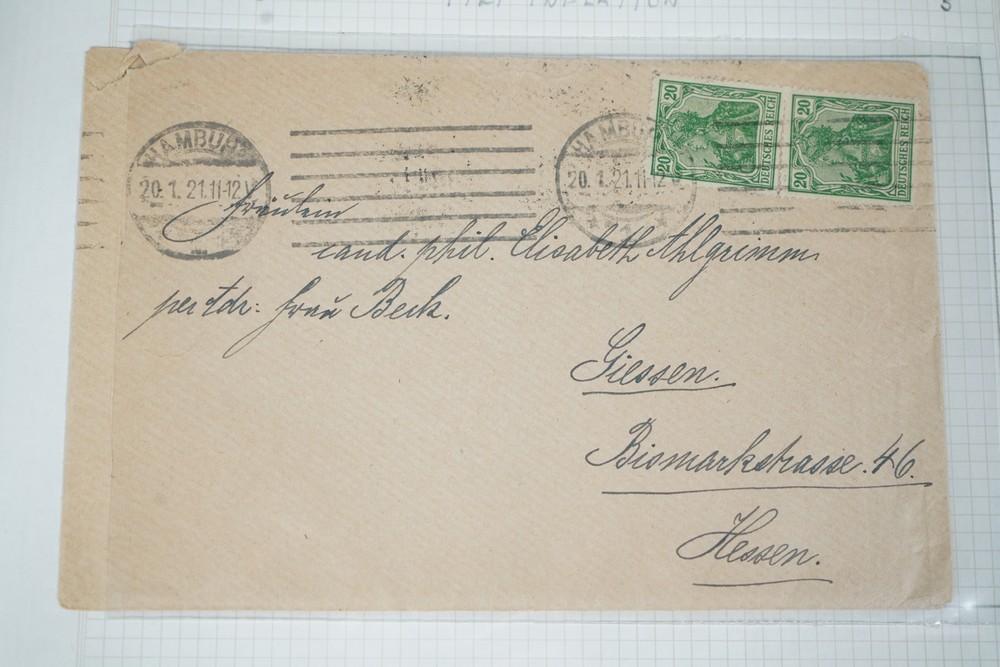 INFLATION
5
HAMBURG
20.1.21.11-12 V
HAMBU
20.1.21.11-12 V
20 20 DEUTSCHES REICH
20 20 DEUTSCHES REICH
Fräulein
cand. phil. Elisabeth Ahlgrimm
per Adr: Frau Beck.
Giessen.
Bismarkstrasse. 46.
Hessen.